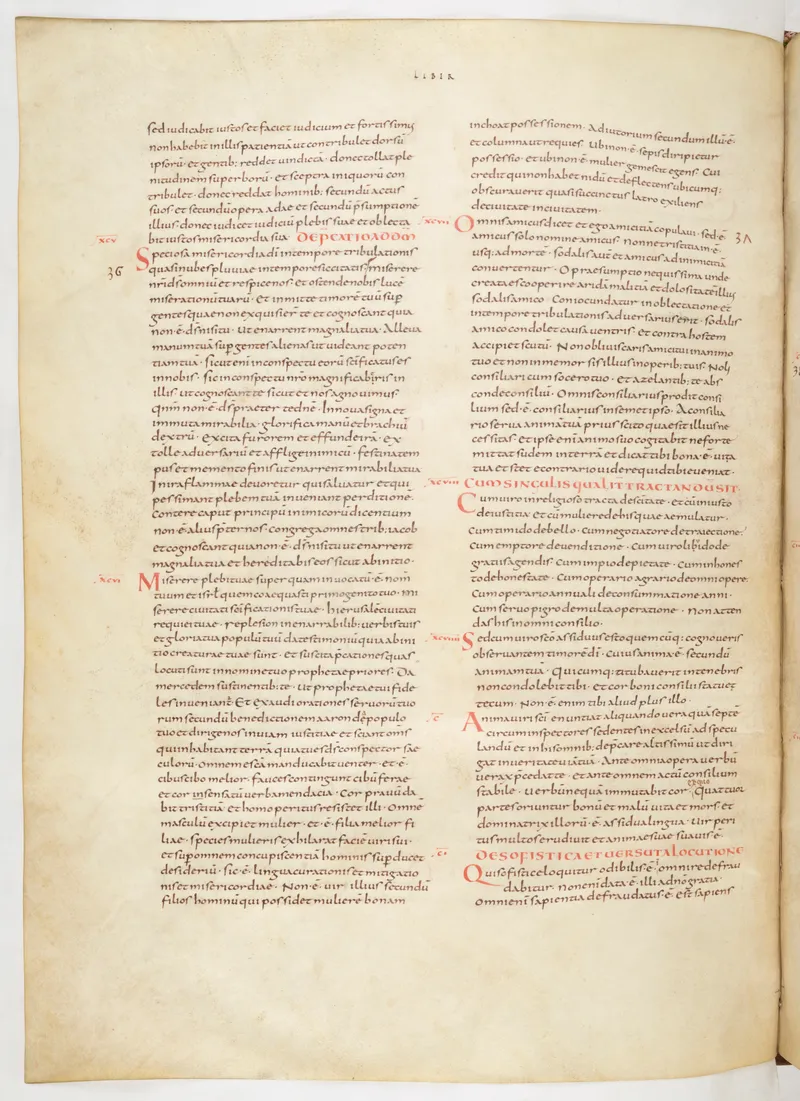 LIBER
sed iudicabit iustos et faciet iudicium et fortissimus
non habebit in illis patientiā ut contribulet dorsū
ipsorū · et gentib: reddet uindictā · donec tollat ple
nitudinem superborū · et sceptra iniquorū con
tribulet · donec reddat hominib: secundū actus
suos et secundū opera adae et secundū p̄sumptionē
illius · donec iudicet iudiciū plebis suae et oblecta
bit iustos misericordia sua · DEPCATIO AD DM̄
XCV
36
Speciosa misericordia dī in tempore tribulationis
quasi nubes pluuiae in tempore siccitatis · miserere
nrī ds̄ omniū et respice nos · et ostende nobis lucē
miserationū tuarū · Et inmitte timorē tuū sup
gentes quae non exquisier̄ te et cognoscant quia
non · ē · ds̄ nisi tu · Ut enarrent magnalia tua · Alleua
manum tuā sup̄ gentes alienas ut uideant poten
tiam tuā · sicut enī in conspectu eorū sc̄ificatus es
in nobis · sic in conspectu nr̄o magnificaberis in
illis · ut cognoscant te sicut et nos agnouimus
qm̄ non · ē · ds̄ praeter te dn̄e · Innoua signa et
immuta mirabilia · glorifica manū et brachiū
dextrū · Excita furorem et effunde irā · Ex
tolle aduersariū et afflige inimicū · festina tem
pus et memento finis ut enarrent mirabilia tua
In ira flammae deuoretur qui saluatur et qui
pessimant plebem tuā inueniant perditionē ·
Contere caput principū inimicorū dicentium
non · ē · alius p̄ter nos · congrega omnes trib: iacob
et cognoscant quia non · ē · ds̄ nisi tu ut enarrent
magnalia tua et hereditabis eos sicut ab initio ·
XCVI
Miserere plebi tuae super quam inuocatū · ē · nom̄
tuum et isrl̄ quem coaequasti primogenito tuo · Mi
serere ciuitati sc̄ificationis tuae · hierusalē ciuitati
requiei tuae · reple sion inenarrabilib: uerbis tuis
et gloria tua populū tuū da testimoniū quia ab ini
tio creaturae tuae sunt · et suscita p̄cationes quas
locuti sunt in nomine tuo prophetae priores · Da
mercedem sustinentib: te · ut prophetae tui fide
les inueniant · Et exaudi orationes seruorū tuo
rum secundū benedictionem aaron de populo
tuo et dirige nos in uiam iustitiae et sciant om̄s
qui inhabitant terrā quia tu es ds̄ conspector sae
culorū · Omnem escā manducabit uenter · et · ē ·
cibus cibo melior · fauces contingunt cibū ferae
et cor insensatū uerba mendacia · Cor prauū da
bit tristitiā et homo peritus resistet illi · Omnē
masculū excipiet mulier · et · ē · filia melior fi
liae · species mulieris exhilarat faciē uiri sui ·
et sup̄ omnem concupiscentiā hominis sup̄ducet
desideriū · sic · ē · lingua curationis et mitigatio
nis et misericordiae · Non · ē · uir illius secundū
filios hominū qui possidet mulierē bonam
inchoat possessionem · Adiutorium secundum illū · ē ·
et columna ut requies · Ubi non · ē · sepis diripietur
possessio · et ubi non · ē · mulier gemescit egens · Cui
credit qui non habet nidū et deflectens ubicumq:
obscurauerit quasi succinctus latro exiliens
de ciuitate in ciuitatem ·
XCVII
37
Omnis amicus dicet et ego amicitiā copulaui · sed · ē ·
amicus solo nomine amicus · Nonne tristitia in · ē ·
usq: ad morte · sodalis autē et amicus ad inimicitiā
conuertentur · O praesumptio nequissima unde
creata es cooperire aridā malitiā et dolositatē illius
sodalis amico · Coniocundatur in oblectatione et
in tempore tribulationis aduersarius erit · sodalis
amico condolet causa uentris · et contra hostem
accipiet scutū · Non obliuiscaris amici tui in animo
tuo et non inmemor sis illius in operib: tuis · Noli
consiliari cum socero tuo · et a zelantib: te abs
conde consiliū · Omnis consiliarius prodit consi
lium sed · ē · consiliarius in semet ipso · A consilia
rio serua animā tuā prius scito quae sit illius ne
cessitas · et ipse enī animo suo cogitabit ne forte
mittat sudem in terrā et dicat tibi bona · ē · uita
tua et stet e contrario uidere quid tibi eueniat ·
XCVIII
CUM SINGULIS QUALIT TRACTANDŪ SIT ·
Cum uiro inreligioso tracta de sc̄itate · et cū iniusto
de iustitia · et cū muliere de his quae aemulatur ·
Cum timido de bello · Cum negotiatore de traiectione ·
Cum emptore de uenditione · Cum uiro libido de
gratiis agendis · Cum impio de pietate · Cum inhones
to de honestate · Cum operario agrario de omni opere ·
Cum operario annuali de consummatione anni ·
Cum seruo pigro de multa operatione · Non atten
das his in omni consilio ·
XCVIIII
Sed cum uiro sc̄o assiduus esto quemcūq: cognoueris
obseruantem timorē dī · Cuius anima · ē · secundū
animam tuā · Quicumq: titubauerit in tenebris
non condolebit tibi · et cor boni consilii statuet
tecum · Non · ē · enim tibi aliud plus illo ·
C
Anima uiri sc̄i enuntiat aliquando uera quā septē
circuminspectores sedentes in excelsū ad specu
landū et in his omnib: dep̄care altissimū ut diri
gat in ueritate uiā tuā · Ante omnia opera uerbū
uerax p̄cedat te · et ante omnem actū consilium
stabile · uerbū nequā immutabit cor · ex quo Quattuor
partes oriuntur bonū et malū uita et mors · et
dominatrix illorū · ē · assidua lingua · Uir peri
tus multos erudiuit et animae suae suauis · ē ·
CI
DE SOFISTICA ET UERSUTA LOCUTIONE
Qui sofistice loquitur odibilis · ē · omni re defrau
dabitur · non enī data · ē · illi a dn̄o gratia ·
Omni enī sapientia defraudatus · ē · est sapiens